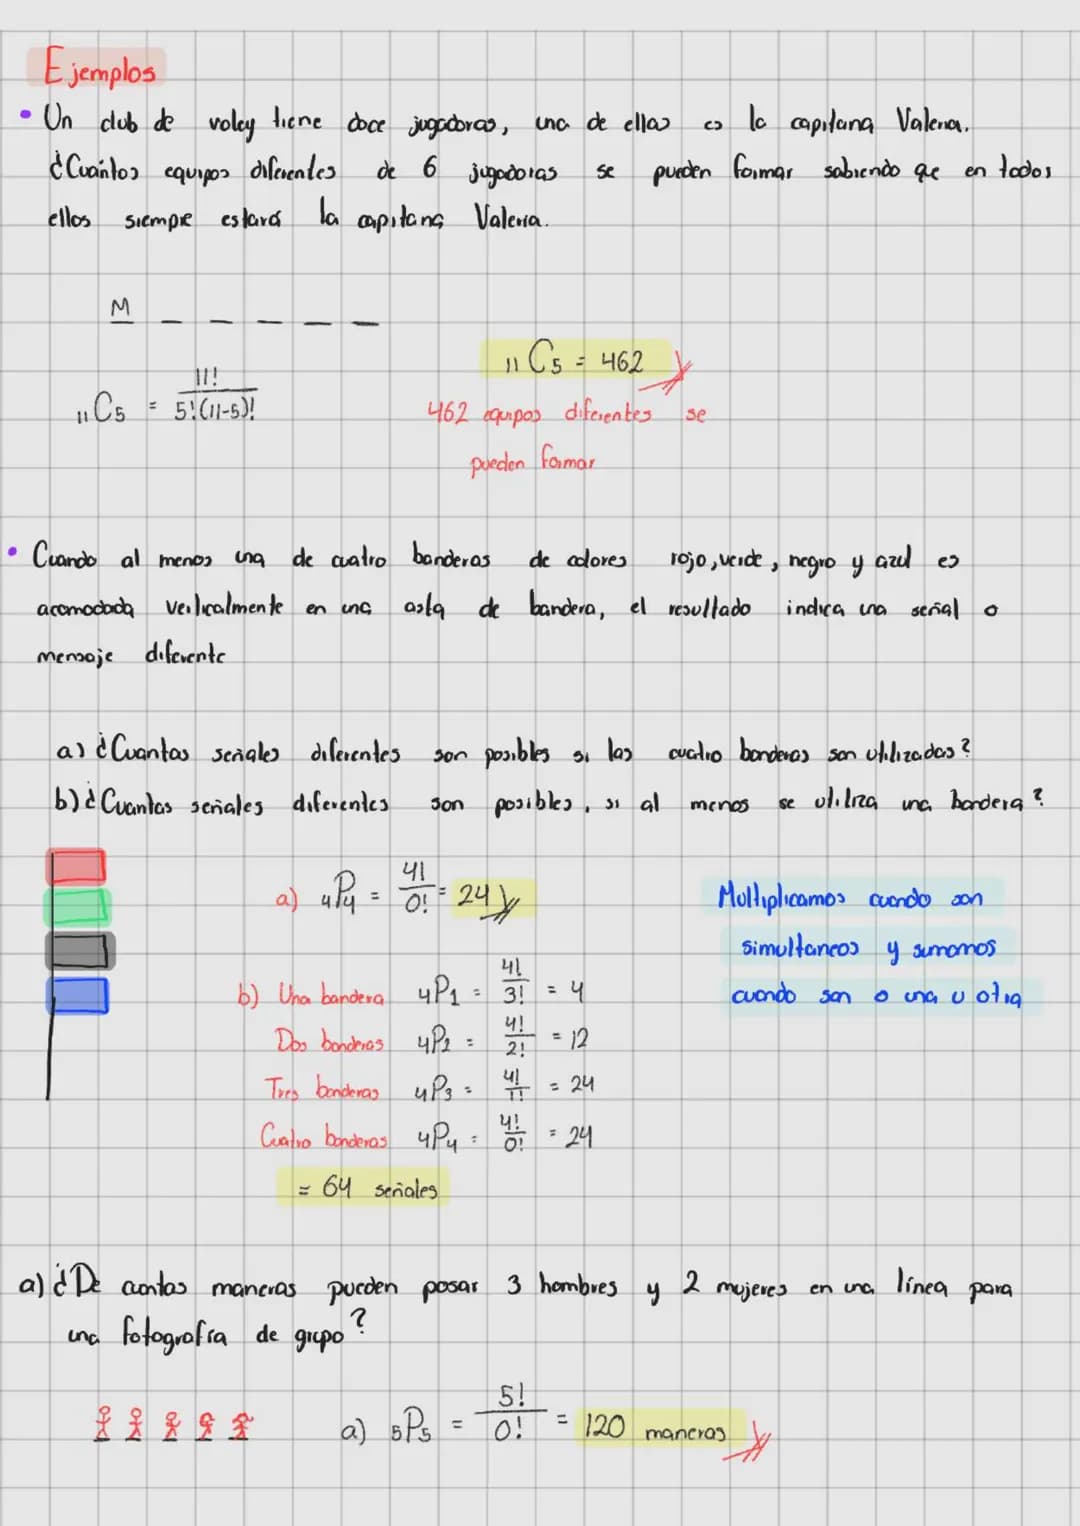 Ejemplos
• Un club de voley tiene doce jugadoras, una de ellas es la capitana Valeria.
¿Cuántos equipos diferentes de 6 jugadoras se pueden formar sabiendo que en todos
ellos siempre estará la capitana Valeria.
M _ _ _ _ _
₁₁C₅ = 462
₁₁C₅ = 11! / 5!(11-5)!
462 equipos diferentes se
pueden formar
• Cuando al menos una de cuatro banderas de colores rojo, verde, negro y azul es
acomodada verticalmente en una asta de bandera, el resultado indica una señal o
mensaje diferente
a) ¿Cuantas señales diferentes son posibles si las cuatro banderas son utilizadas?
b) ¿Cuantas señales diferentes son posibles, si al menos se utiliza una bandera?
a) ₄P₄ = 4! / 0! = 24
Multiplicamos cuando son
simultaneos y sumamos
cuando son o una u otra
b) Una bandera ₄P₁ = 4! / 3! = 4
Dos banderas ₄P₂ = 4! / 2! = 12
Tres banderas ₄P₃ = 4! / 1! = 24
Cuatro banderas ₄P₄ = 4! / 0! = 24
= 64 señales
a) ¿De cuantas maneras pueden posar 3 hombres y 2 mujeres en una línea para
una fotografía de grupo?
a) ₅P₅ = 5! / 0! = 120 maneras